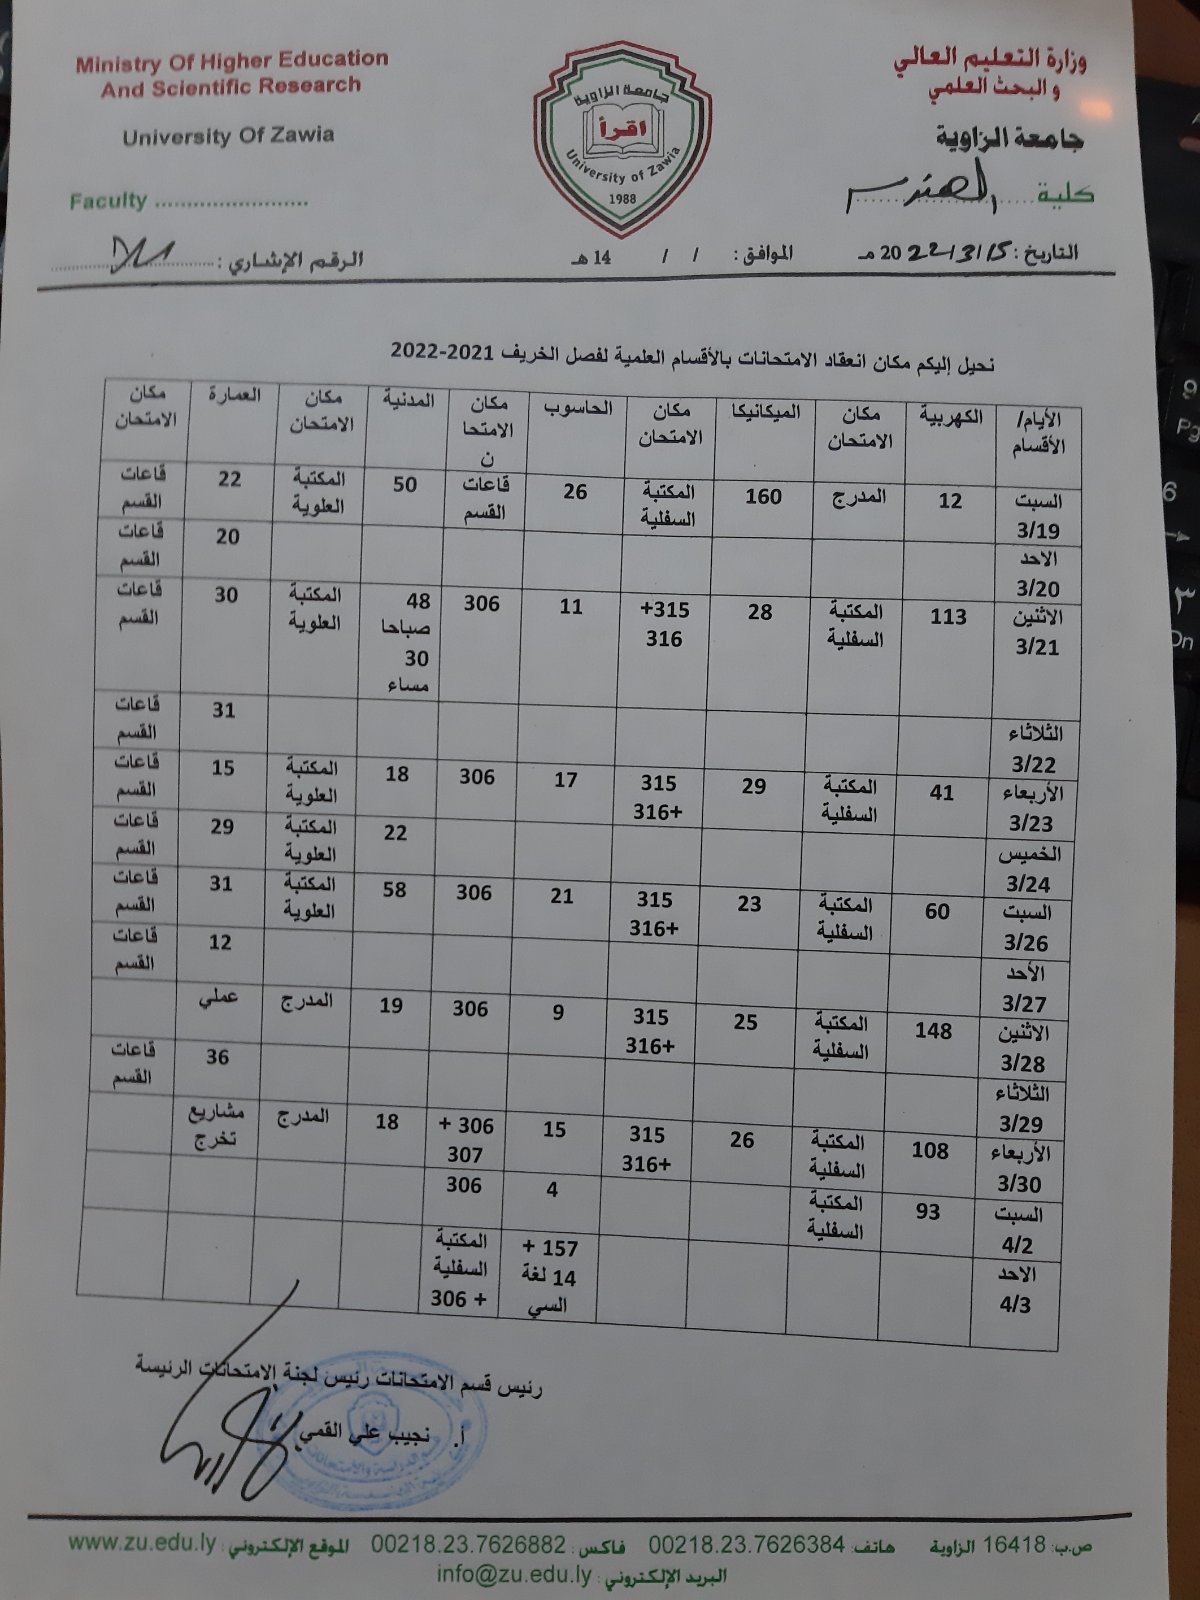 Ministry Of Higher Education
And Scientific Research
University Of Zawia
Faculty ........................
جامعة الزاوية
اقرأ
University of Zawia
1988
وزارة التعليم العالي
و البحث العلمي
جامعة الزاوية
كلية
التاريخ : 2022/3/15 مـ
الموافق : / / 14 هـ
الرقم الإشاري :
نحيل إليكم مكان انعقاد الامتحانات بالأقسام العلمية لفصل الخريف 2021-2022
الأيام/ الأقسام الكهربية مكان الامتحان الميكانيكا مكان الامتحان الحاسوب مكان الامتحان المدنية مكان الامتحان العمارة مكان الامتحان
السبت 3/19 12 المدرج 160 المكتبة السفلية 26 قاعات القسم 50 المكتبة العلوية 22 قاعات القسم
الاحد 3/20 20 قاعات القسم
الاثنين 3/21 113 المكتبة السفلية 28 315+ 316 11 306 48 صباحا 30 مساء المكتبة العلوية 30 قاعات القسم
الثلاثاء 3/22 31 قاعات القسم
الأربعاء 3/23 41 المكتبة السفلية 29 315 +316 17 306 18 المكتبة العلوية 15 قاعات القسم
الخميس 3/24 22 المكتبة العلوية 29 قاعات القسم
السبت 3/26 60 المكتبة السفلية 23 315 +316 21 306 58 المكتبة العلوية 31 قاعات القسم
الأحد 3/27 12 قاعات القسم
الاثنين 3/28 148 المكتبة السفلية 25 315 +316 9 306 19 المدرج عملي
الثلاثاء 3/29 36 قاعات القسم
الأربعاء 3/30 108 المكتبة السفلية 26 315 +316 15 306 + 307 18 المدرج مشاريع تخرج
السبت 4/2 93 المكتبة السفلية 4 306
الاحد 4/3 157 + 14 لغة السي المكتبة السفلية + 306
رئيس قسم الامتحانات رئيس لجنة الامتحانات الرئيسة
أ. نجيب علي القمي
ص.ب: 16418 الزاوية هاتف: 00218.23.7626384 فاكس : 00218.23.7626882 الموقع الإلكتروني : www.zu.edu.ly
البريد الإلكتروني : info@zu.edu.ly